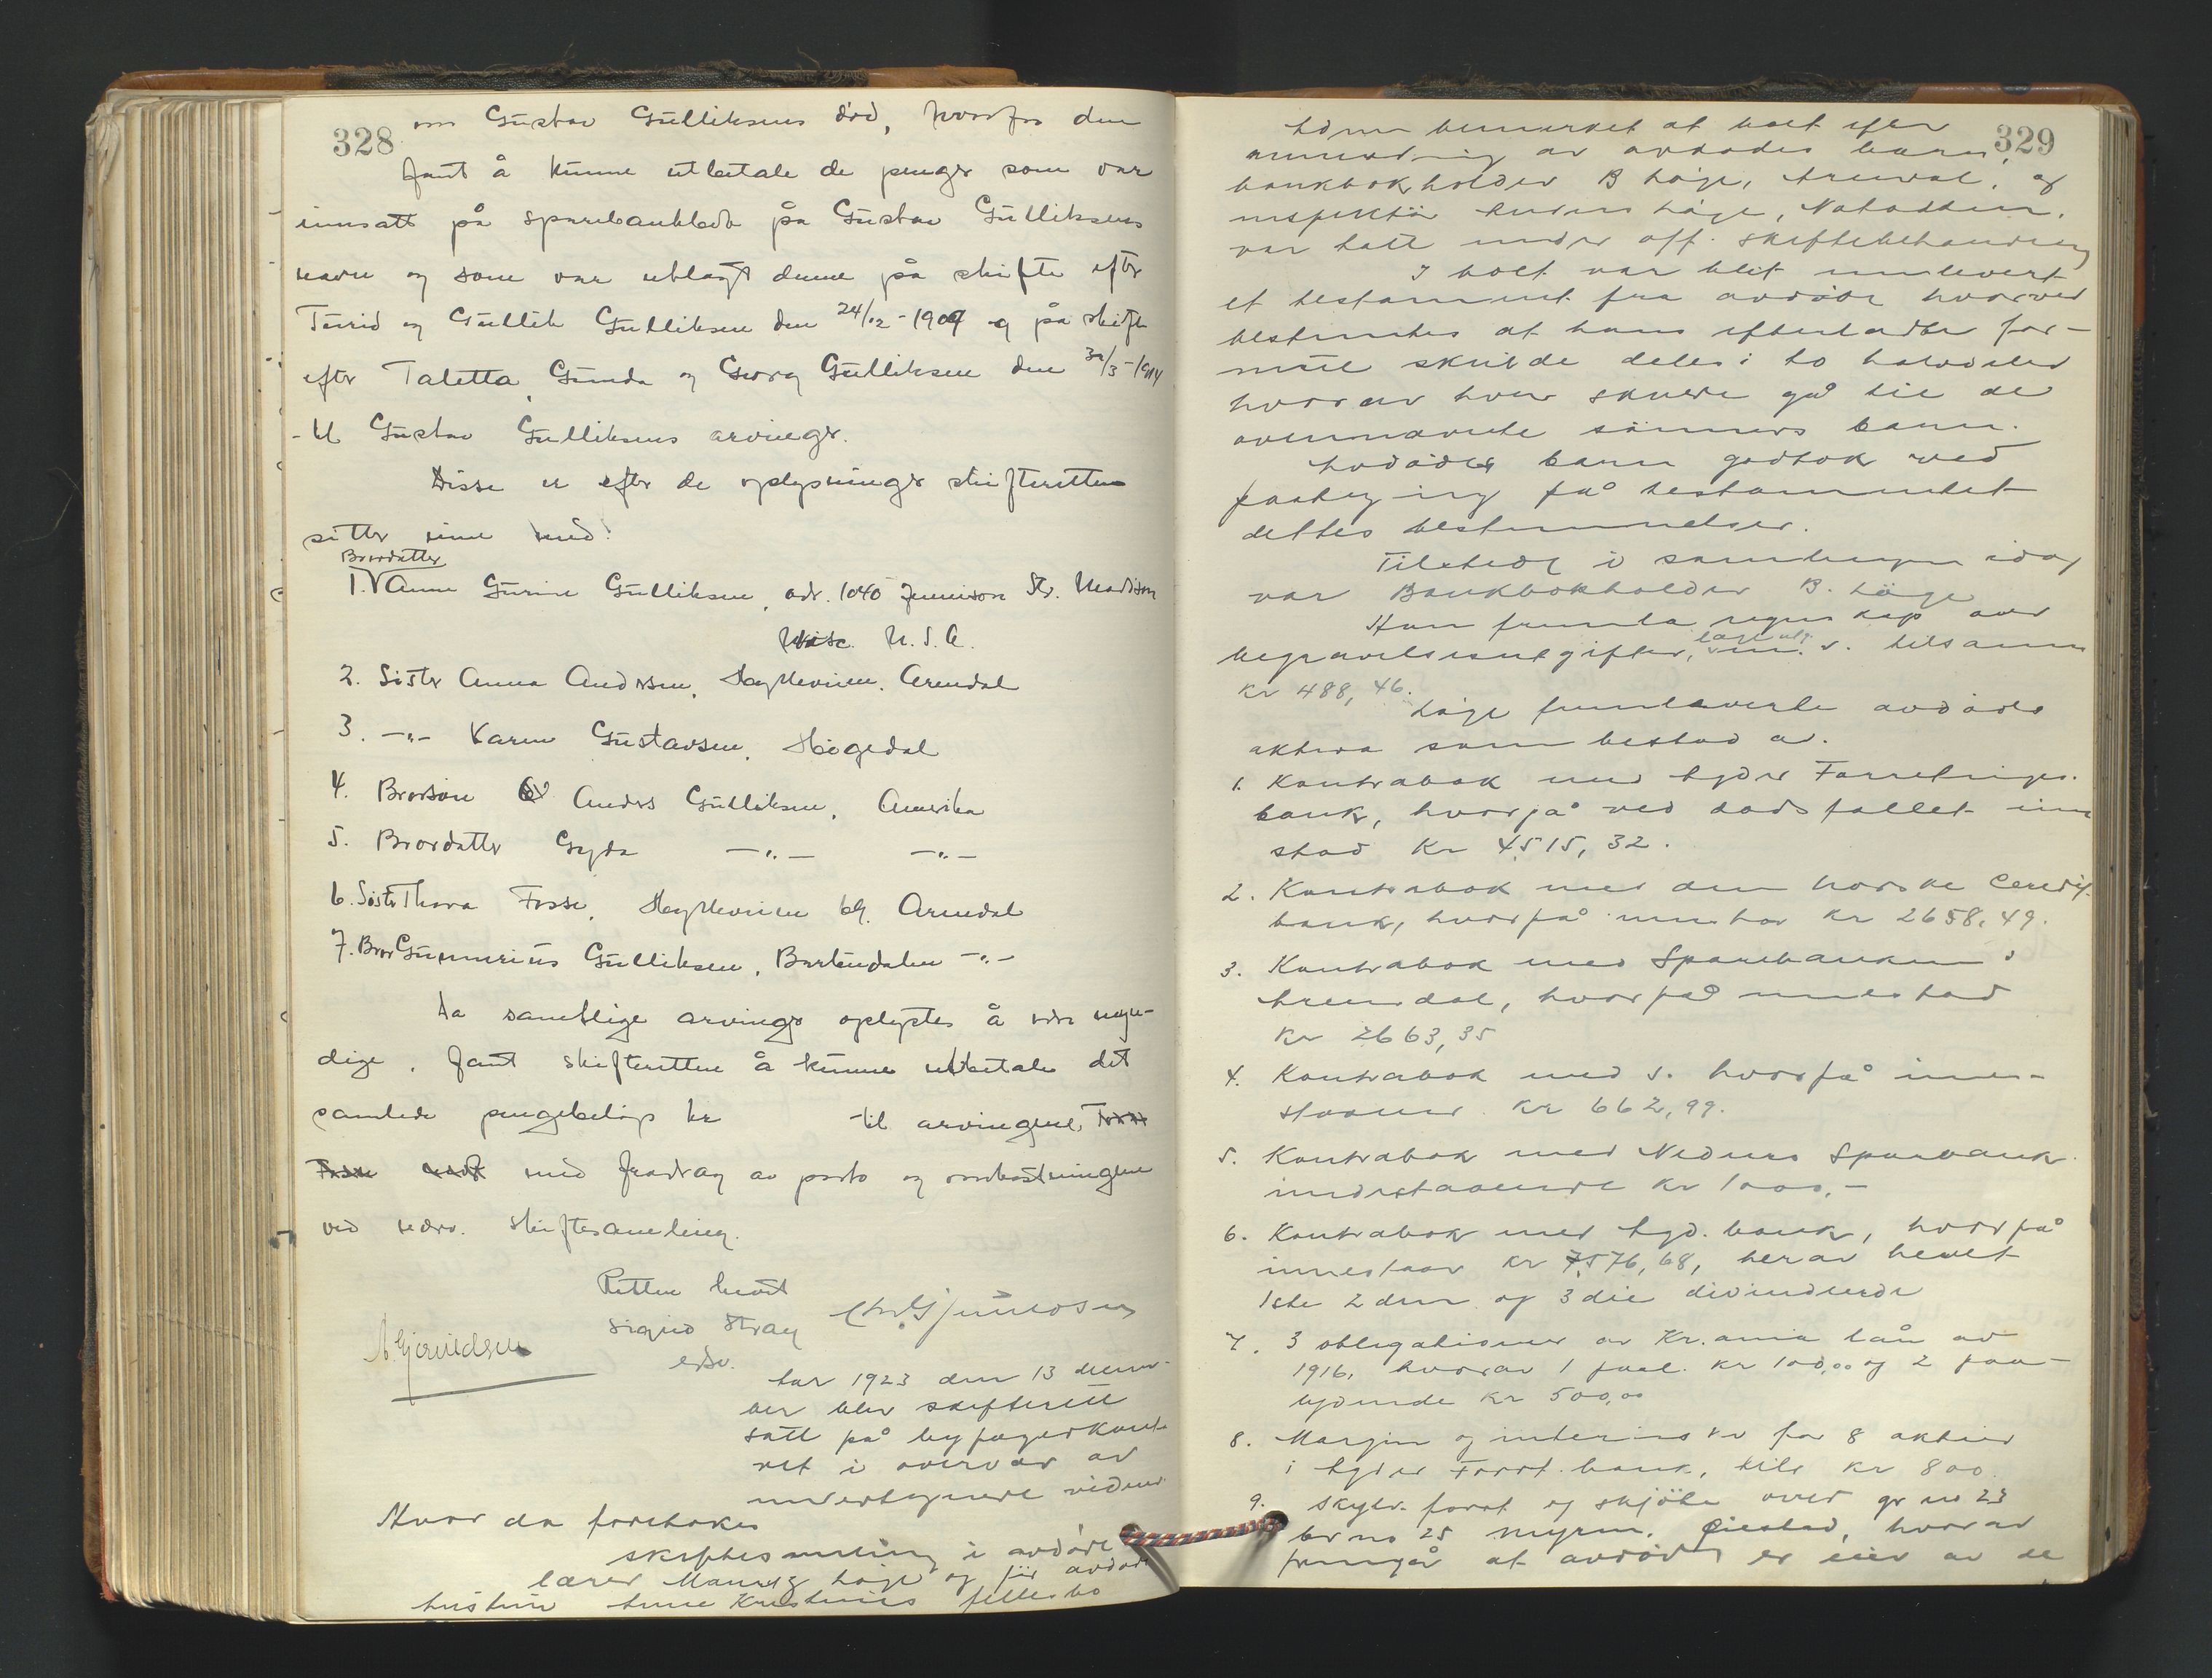 328
om Gustav Gulliksens död, hvorfor den
fant å kunne utbetale de penger som var
innsatt på sparebankbok på Gustav Gulliksens
navn og som var utlagt denne på skifte efter
Turid og Gullik Gulliksen den 24/12-1909 og på skifte
efter Taletta, Gunda og Georg Gulliksen den 30/3-1914
til Gustav Gulliksens arvinger.
Disse er efter de oplysninger skifteretten
sitter inne med:
Brordatter
1. Anne Gurine Gulliksen, adr. 1040 Jennison Str. Madison
Wisc. U.S.A.
2. Söster Anna Andersen, Arendal
3. -"- Karen Gustavsen, Högedal
4. Brorsön Anders Gulliksen, Amerika
5. Brordatter Gyda -"- -"-
6. Söster Thora Fosse, Arendal
7. Bror Gunnerius Gulliksen, -"-
Da samtlige arvinger oplystes å være myn-
dige, fant skifteretten å kunne utbetale det
samlede pengebelöp kr til arvingene,
med fradrag av porto og omkostningene
ved nærv. skiftesamling.
Retten hevet
Sigrid Stray
edsv.
A. Gjeruldsen
Aar 1923 den 13 decem-
ber blev skifterett
satt på byfogedkont-
ret i overvær av
undertegnede vidner
Hvor da foretokes
skiftesamling i avdöde
lærer Mauritz Löge og för avdöde
hustru Anne Kristines fellesbo
329
bemerket at boet efter
anmodning av avdödes barn,
bankbokholder B Löge, Arendal, og
inspektör Löge, Notodden,
var tatt under off. skiftebehandling
I boet var blit innlevert
et testament fra avdöde hvorved
bestemtes at hans efterladte for-
mue skulde deles i to halvdeler
hvorav hver skulde gå til de
ovennævnte sönners barn.
Avdödes barn godtok ved
paategning på testamentet
dettes bestemmelser.
Tilstede i samlingen idag
var Bankbokholder B. Löge
Han fremla regnskap over
begravelsesutgifter, m. v. tilsammen
kr 488,46.
Löge fremlaverte avdödes
aktiva som bestod av.
1. Kontrabok med Agder Forretnings-
bank, hvorpå ved dödsfallet inne
stod kr 4515,32.
2. Kontrabok med den norske Credit-
bank, hvorpå innestod kr 2658,49.
3. Kontrabok med Sparebanken i
Arendal, hvorpå innestod
kr 2663,35
4. Kontrabok med s. hvorpå inne-
staaende kr 662,99.
5. Kontrabok med Nedenes Sparebank
innestaaende kr 1000,-
6. Kontrabok med Agd. bank, hvorpå
innestaar kr 7576,68, herav hevet
1ste 2den og 3die dividende
7. 3 obligationer av Kr.ania lån av
1916, hvorav 1 paal. kr 100,00 og 2 paa-
lydende kr 500,00
8. Margin og interims kv for 8 aktier
i Agder Forr. bank, tils kr 800.
9. Skyld. forr og skjöte over gr no 23
br no 25 Myren, Öiestad, hvorav
fremgår at avdöde er eier av de